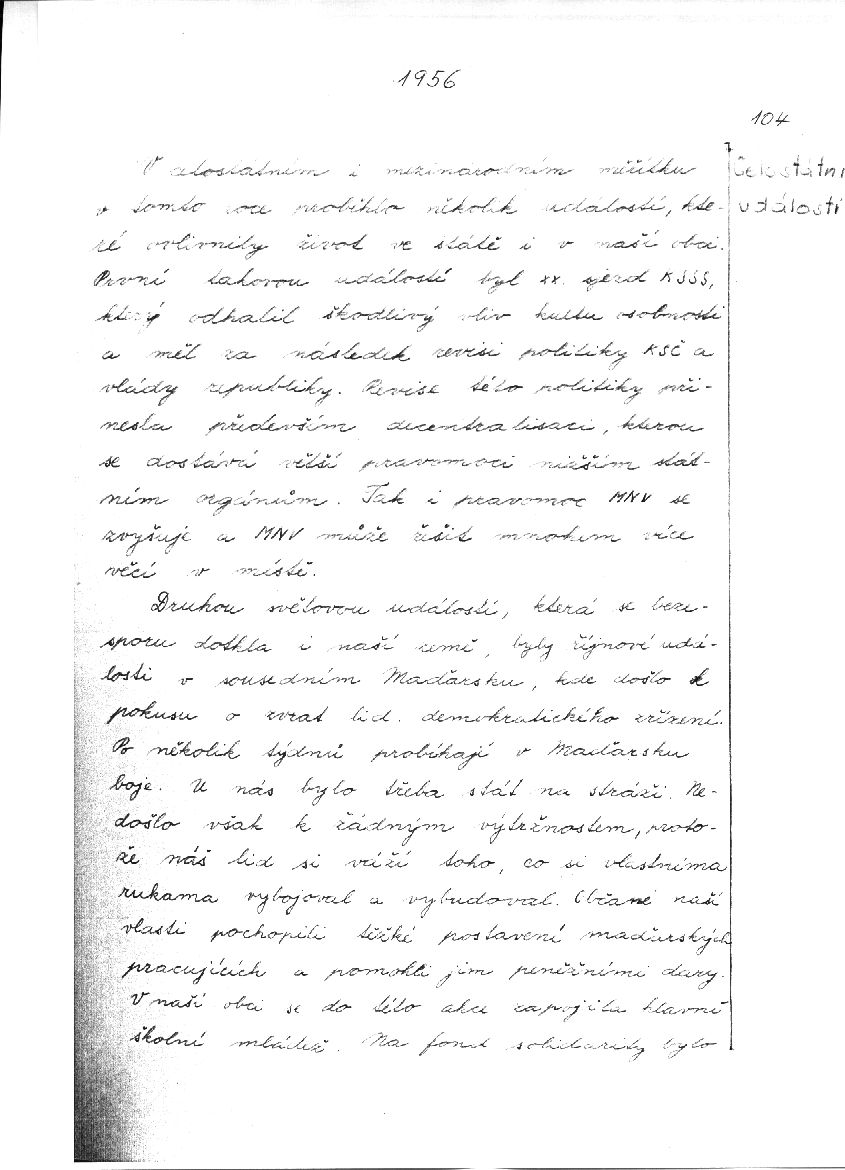 1956
104
V celostátním i mezinárodním měřítku
v tomto roce proběhlo několik událostí, kte-
ré ovlivnily život ve státě i v naší obci.
První takovou událostí byl XX. sjezd KSSS,
který odhalil škodlivý vliv kultu osobnosti
a měl za následek revisi politiky KSČ a
vlády republiky. Revise této politiky při-
nesla především decentralisaci, kterou
se dostává větší pravomoci nižším stát-
ním orgánům. Tak i pravomoc MNV se
zvyšuje a MNV může řešit mnohem více
věcí v místě.
Druhou světovou událostí, která se beze-
sporu dotkla i naší země, byly říjnové udá-
losti v sousedním Maďarsku, kde došlo k
pokusu o zvrat lid. demokratického zřízení.
Po několik týdnů probíhají v Maďarsku
boje. U nás bylo třeba stát na stráži. Ne-
došlo však k žádným výtržnostem, proto-
že náš lid si váží toho, co si vlastníma
rukama vybojoval a vybudoval. Občané naší
vlasti pochopili těžké postavení maďarských
pracujících a pomohli jim peněžními dary.
V naší obci se do této akce zapojila hlavně
školní mládež. Na fond solidarity bylo
Celostátní
události